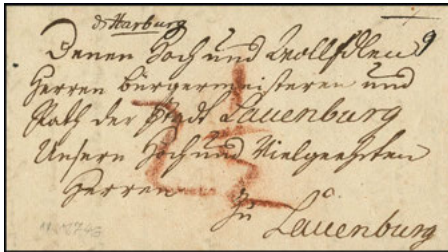 d Harburg
9
Denen Hoch und WollEdlen
Herren bürgermeisteren und
Rath der Stadt Lauenburg
Unsern Hoch und Vielgeehrten
Herren
Zu
Lauenburg